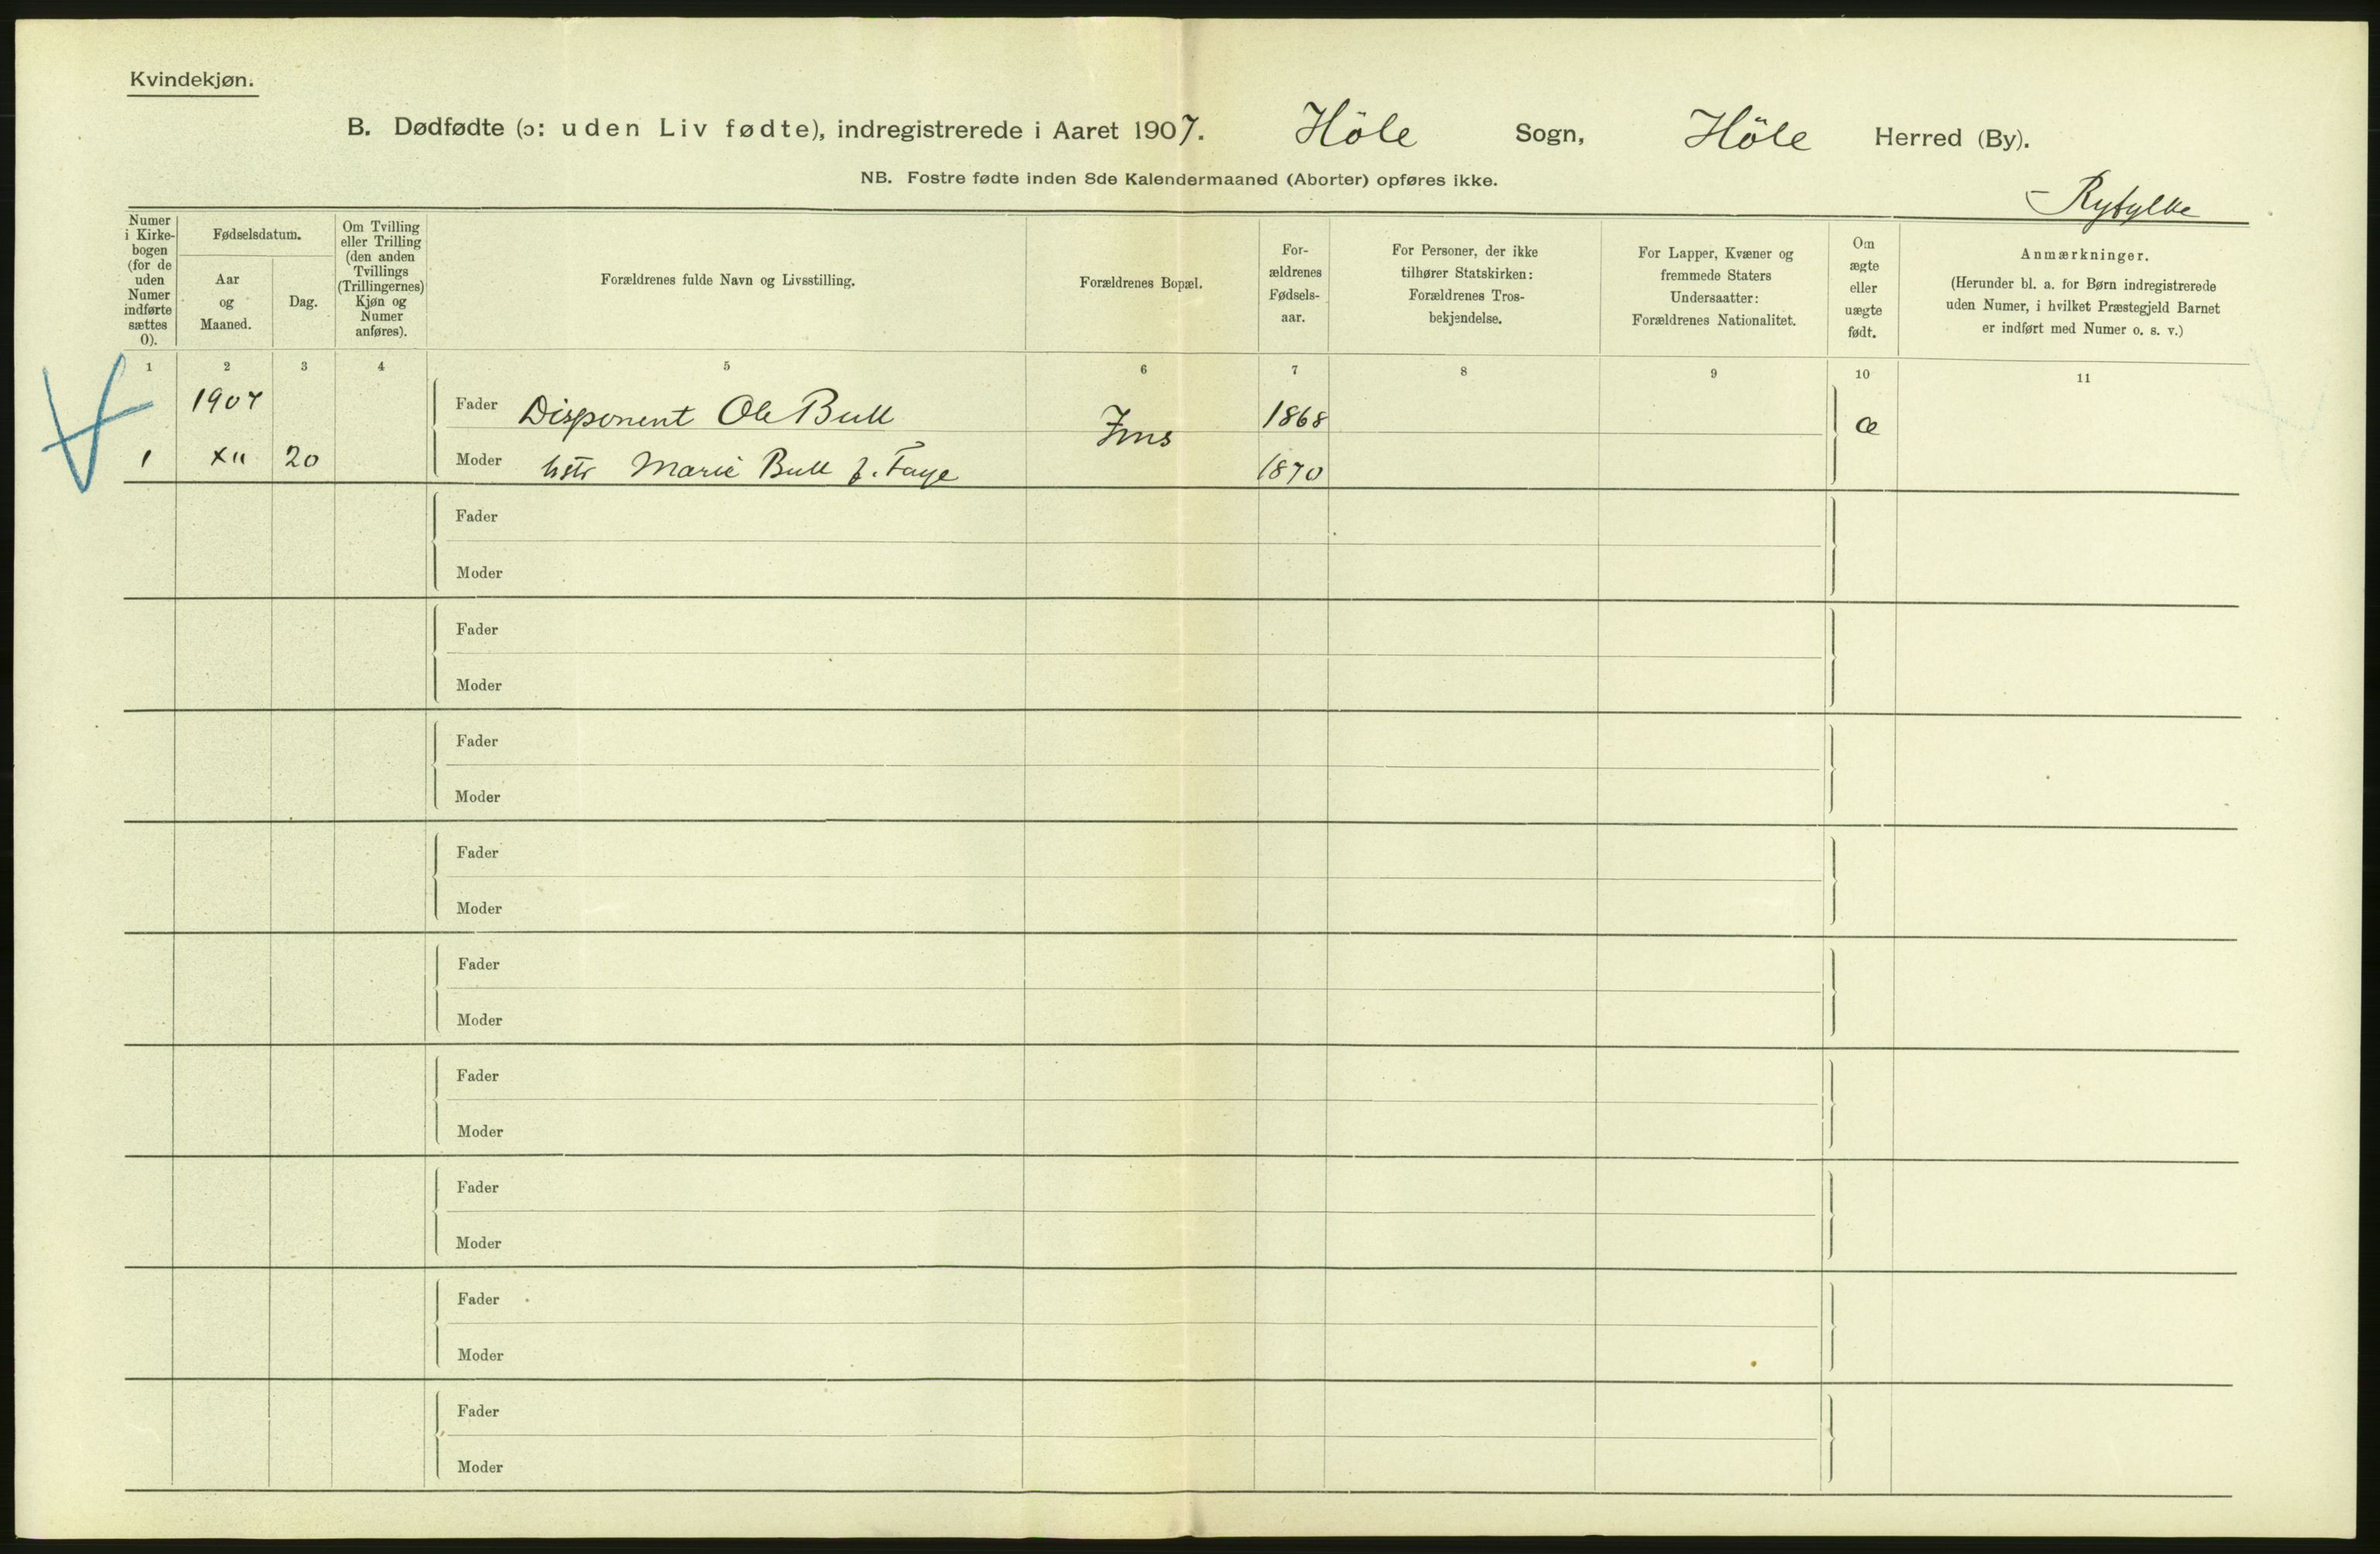 Kvindekjøn.
B. Dødfødte (ɔ: uden Liv fødte), indregistrerede i Aaret 1907. Höle Sogn, Höle Herred (By).
NB. Fostre fødte inden 8de Kalendermaaned (Aborter) opføres ikke.
Ryfylke
Numer
i Kirke-
bogen
(for de
uden
Numer
indførte
sættes
0).
Fødselsdatum.
Aar
og
Maaned.
Dag.
Om Tvilling
eller Trilling
(den anden
Tvillings
(Trillingernes)
Kjøn og
Numer
anføres).
Forældrenes fulde Navn og Livsstilling.
Forældrenes Bopæl.
For-
ældrenes
Fødsels-
aar.
For Personer, der ikke
tilhører Statskirken:
Forældrenes Tros-
bekjendelse.
For Lapper, Kvæner og
fremmede Staters
Undersaatter:
Forældrenes Nationalitet.
Om
ægte
eller
uægte
født.
Anmærkninger.
(Herunder bl. a. for Børn indregistrerede
uden Numer, i hvilket Præstegjeld Barnet
er indført med Numer o. s. v.)
1 2 3 4 5 6 7 8 9 10 11
1907 Fader Disponent Ole Bull Ims 1868 æ
1 XII 20 Moder hstr Marie Bull f. Faye 1870
Fader
Moder
Fader
Moder
Fader
Moder
Fader
Moder
Fader
Moder
Fader
Moder
Fader
Moder
Fader
Moder
Fader
Moder